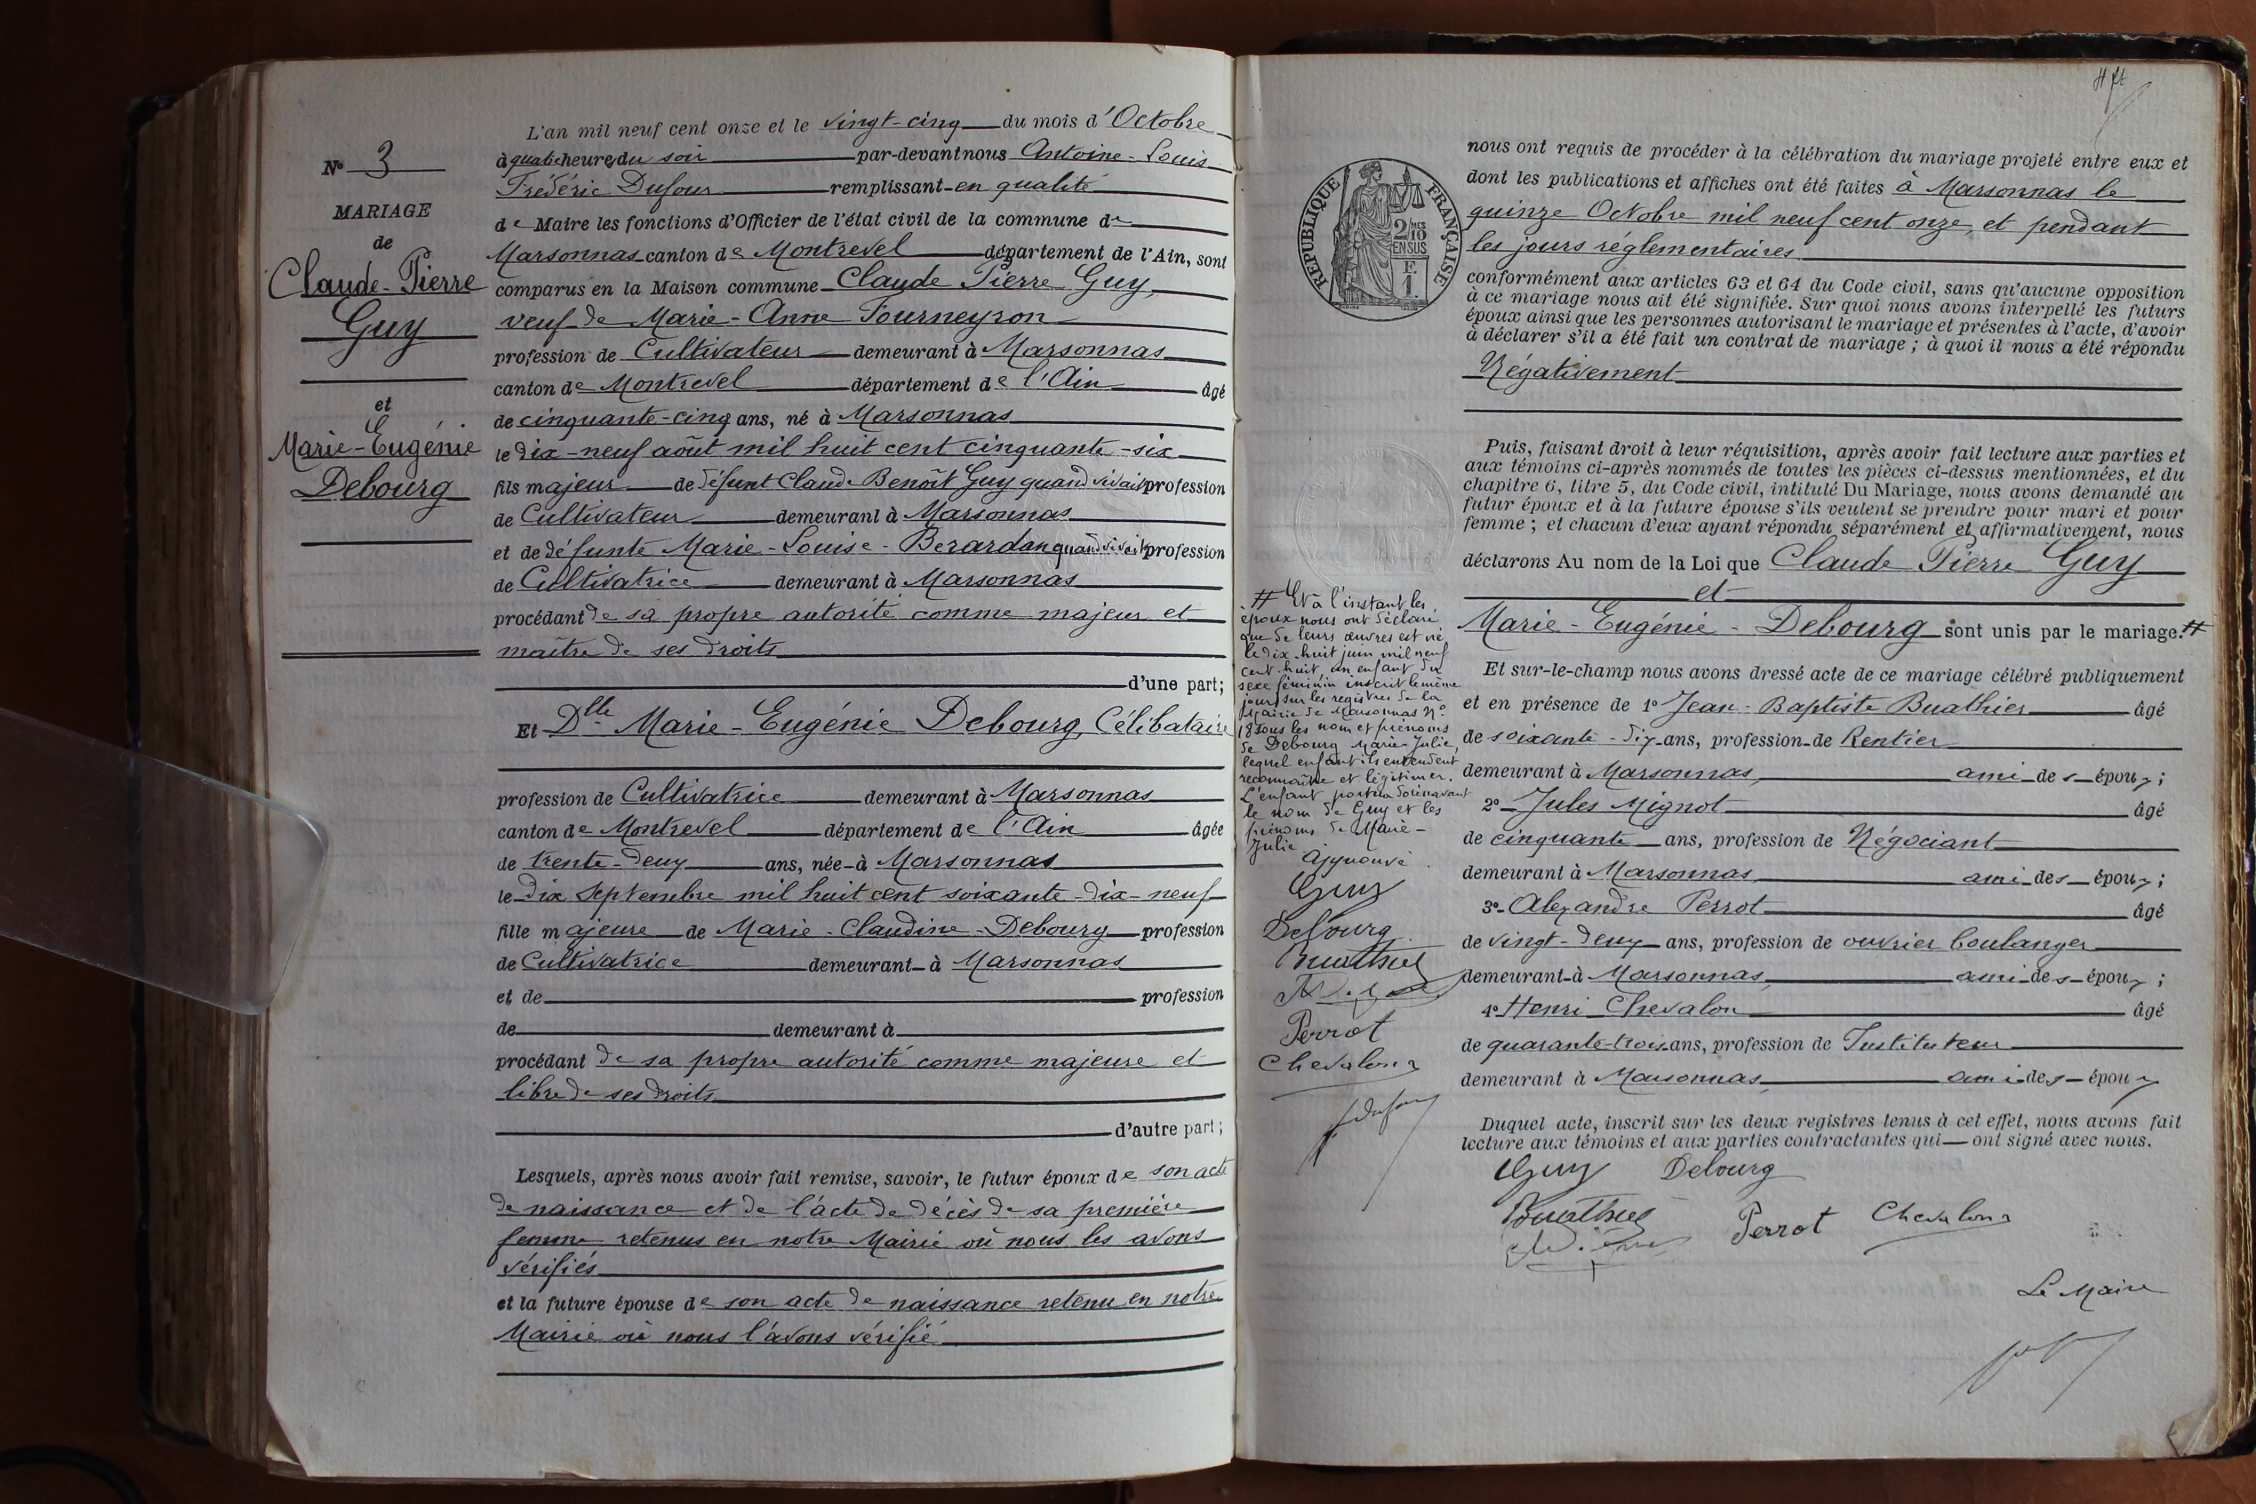 N° 3
MARIAGE
de
Claude-Pierre
Guy
et
Marie-Eugénie
Debourg
L'an mil neuf cent onze et le vingt-cinq du mois d'Octobre
à quatre heures du soir par-devant nous Antoine-Louis
Frédéric Dufour remplissant en qualité
de Maire les fonctions d'Officier de l'état civil de la commune de
Marsonnas canton de Montrevel département de l'Ain, sont
comparus en la Maison commune Claude Pierre Guy,
veuf de Marie-Anne Tourneyron
profession de Cultivateur demeurant à Marsonnas
canton de Montrevel département de l'Ain âgé
de cinquante-cinq ans, né à Marsonnas
le dix-neuf août mil huit cent cinquante-six
fils majeur de défunt Claude Benoît Guy quand vivait profession
de Cultivateur demeurant à Marsonnas
et de défunte Marie-Louise-Berardan quand vivait profession
de Cultivatrice demeurant à Marsonnas
procédant de sa propre autorité comme majeur et
maître de ses droits
d'une part;
Et Dlle Marie-Eugénie Debourg, Célibataire
profession de Cultivatrice demeurant à Marsonnas
canton de Montrevel département de l'Ain âgée
de trente-deux ans, née à Marsonnas
le dix Septembre mil huit cent soixante-dix-neuf
fille majeure de Marie-Claudine-Debourg profession
de Cultivatrice demeurant à Marsonnas
et de profession
de demeurant à
procédant de sa propre autorité comme majeure et
libre de ses droits
d'autre part;
Lesquels, après nous avoir fait remise, savoir, le futur époux de son acte
de naissance et de l'acte de décès de sa première
femme retenus en notre Mairie où nous les avons
vérifiés
et la future épouse de son acte de naissance retenu en notre
Mairie où nous l'avons vérifié
RÉPUBLIQUE FRANÇAISE
2/10 MES
EN SUS
F.
1.
nous ont requis de procéder à la célébration du mariage projeté entre eux et
dont les publications et affiches ont été faites à Marsonnas le
quinze Octobre mil neuf cent onze, et pendant
les jours réglementaires
conformément aux articles 63 et 64 du Code civil, sans qu'aucune opposition
à ce mariage nous ait été signifiée. Sur quoi nous avons interpellé les futurs
époux ainsi que les personnes autorisant le mariage et présentes à l'acte, d'avoir
à déclarer s'il a été fait un contrat de mariage ; à quoi il nous a été répondu
Négativement
Puis, faisant droit à leur réquisition, après avoir fait lecture aux parties et
aux témoins ci-après nommés de toutes les pièces ci-dessus mentionnées, et du
chapitre 6, titre 5, du Code civil, intitulé Du Mariage, nous avons demandé au
futur époux et à la future épouse s'ils veulent se prendre pour mari et pour
femme ; et chacun d'eux ayant répondu séparément et affirmativement, nous
déclarons Au nom de la Loi que Claude Pierre Guy
et
Marie-Eugénie-Debourg sont unis par le mariage. #
Et sur-le-champ nous avons dressé acte de ce mariage célébré publiquement
et en présence de 1° Jean-Baptiste Buathier âgé
de soixante-dix ans, profession de Rentier
demeurant à Marsonnas, ami des époux ;
2° Jules Mignot âgé
de cinquante ans, profession de Négociant
demeurant à Marsonnas ami des époux ;
3° Alexandre Perrot âgé
de vingt-deux ans, profession de ouvrier boulanger
demeurant à Marsonnas, ami des époux ;
4° Henri Chevalon âgé
de quarante-trois ans, profession de Instituteur
demeurant à Marsonnas, ami des époux
Duquel acte, inscrit sur les deux registres tenus à cet effet, nous avons fait
lecture aux témoins et aux parties contractantes qui ont signé avec nous.
Guy Debourg
Buathier Perrot Chevalon
Le Maire
# Et à l'instant les
époux nous ont déclaré
que de leurs œuvres est né
le dix-huit juin mil neuf
cent huit, un enfant du
sexe féminin inscrit le même
jour sur les registres de la
Mairie de Marsonnas N°
18 sous les nom et prénoms
de Debourg Marie-Julie,
lequel enfant ils entendent
reconnaître et légitimer.
L'enfant portera dorénavant
le nom de Guy et les
prénoms de Marie-
Julie
Approuvé.
Guy
Debourg
Buathier
Perrot
Chevalon
Dufour